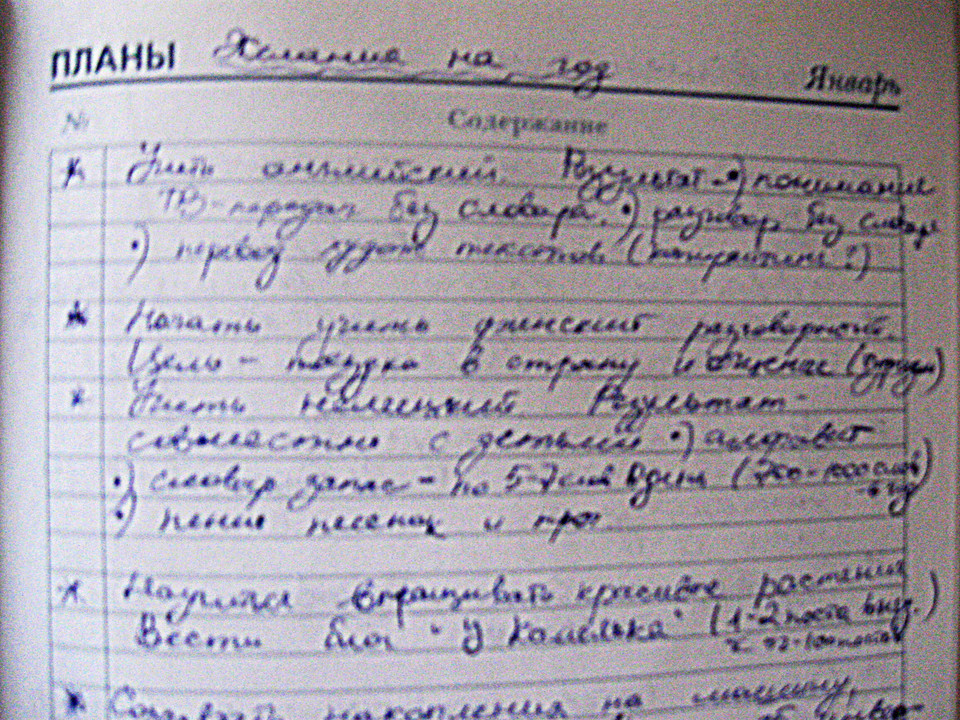 ПЛАНЫ Желание на год
Январь
№ Содержание
Учить английский. Результат •) понимание
ТВ-передач без словаря. •) разговор без словаря
•) перевод худож текстов (
Начать учить финский разговорный.
Цель - поездка в страну и общение (
Учить немецкий. Результат -
совместно с детьми •) алфавит
•) словар запас - по 5-7 слов в день (700-1000 слов)
•) пение песенок и
Научится выращивать красивые растения
Вести блог "У Камелька" (1-2 поста в нед.)
накопления на машину,